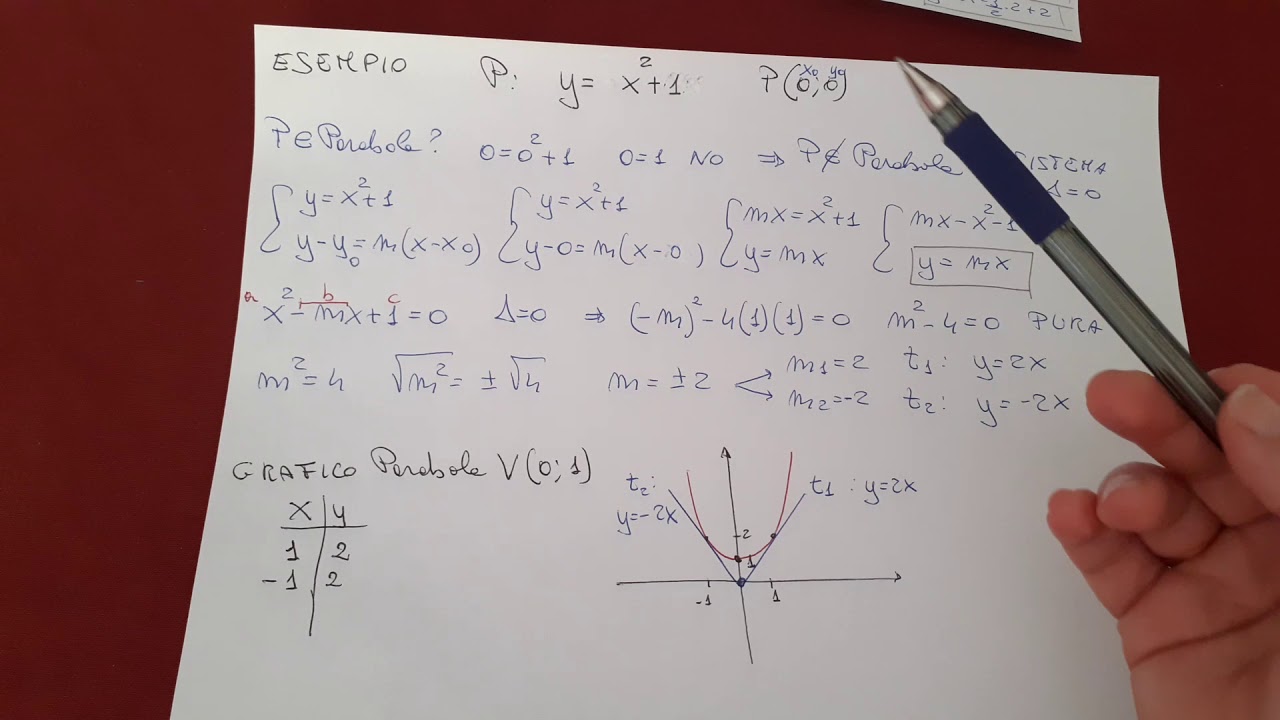 1/2 · 2 + 2
ESEMPIO P: y = x² + 1 P(0;0) x0 y0
P ∈ Parabola? 0 = 0² + 1 0 = 1 NO ⇒ P ∉ Parabola SISTEMA
Δ = 0
{ y = x² + 1 { y = x² + 1 { mx = x² + 1 { mx - x² - 1
y - y0 = m(x - x0) y - 0 = m(x - 0) y = mx y = mx
a b c
x² - mx + 1 = 0 Δ = 0 ⇒ (-m)² - 4(1)(1) = 0 m² - 4 = 0 PURA
m² = 4 √m² = ± √4 m = ± 2 m1 = 2 t1: y = 2x
m2 = -2 t2: y = -2x
GRAFICO Parabola V(0;1)
x | y
1 | 2
-1 | 2
t2:
y = -2x
t1: y = 2x
2
1
-1 1